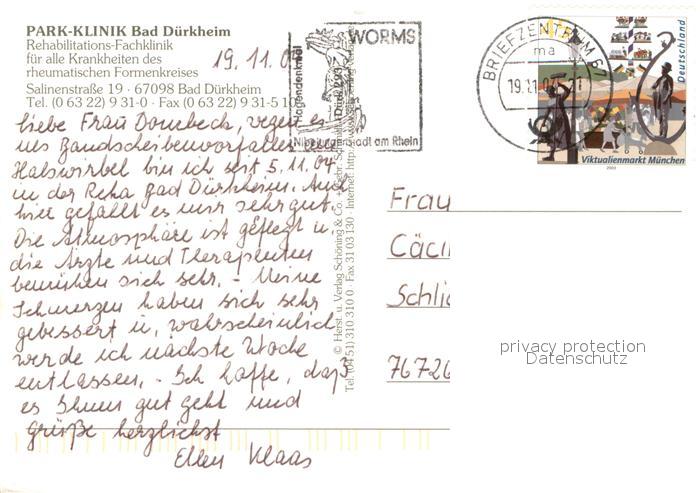 PARK-KLINIK Bad Dürkheim
Rehabilitations-Fachklinik
für alle Krankheiten des
rheumatischen Formenkreises
Salinenstraße 19 · 67098 Bad Dürkheim
Tel. (0 63 22) 9 31-0 · Fax (0 63 22) 9 31-5 10
19.11.04
liebe Frau Dombeck, wegen
Bandscheibenvorfalles
Halswirbel bin ich seit 5.11.04
in der Reha Bad Dürkheim. Auch
hier gefällt es mir sehr gut.
Die Atmosphäre ist gepflegt u.
die Ärzte und Therapeuten
bemühen sich sehr. - Meine
Schmerzen haben sich sehr
gebessert u. wahrscheinlich
werde ich nächste Woche
entlassen. - Ich hoffe, daß
es Ihnen gut geht und
grüße herzlichst
Ellen Klaas
© Herst. u. Verlag Schöning & Co.
Tel. (04 51) 310 310 0 · Fax 31 03 130 · Internet:
Hagendenkmal
WORMS
Nibelungenstadt am Rhein
BRIEFZENTRUM 67
ma
19.11.04
Deutschland
Viktualienmarkt München
2003
Frau
Cäcil
Schli
76726
privacy protection
Datenschutz